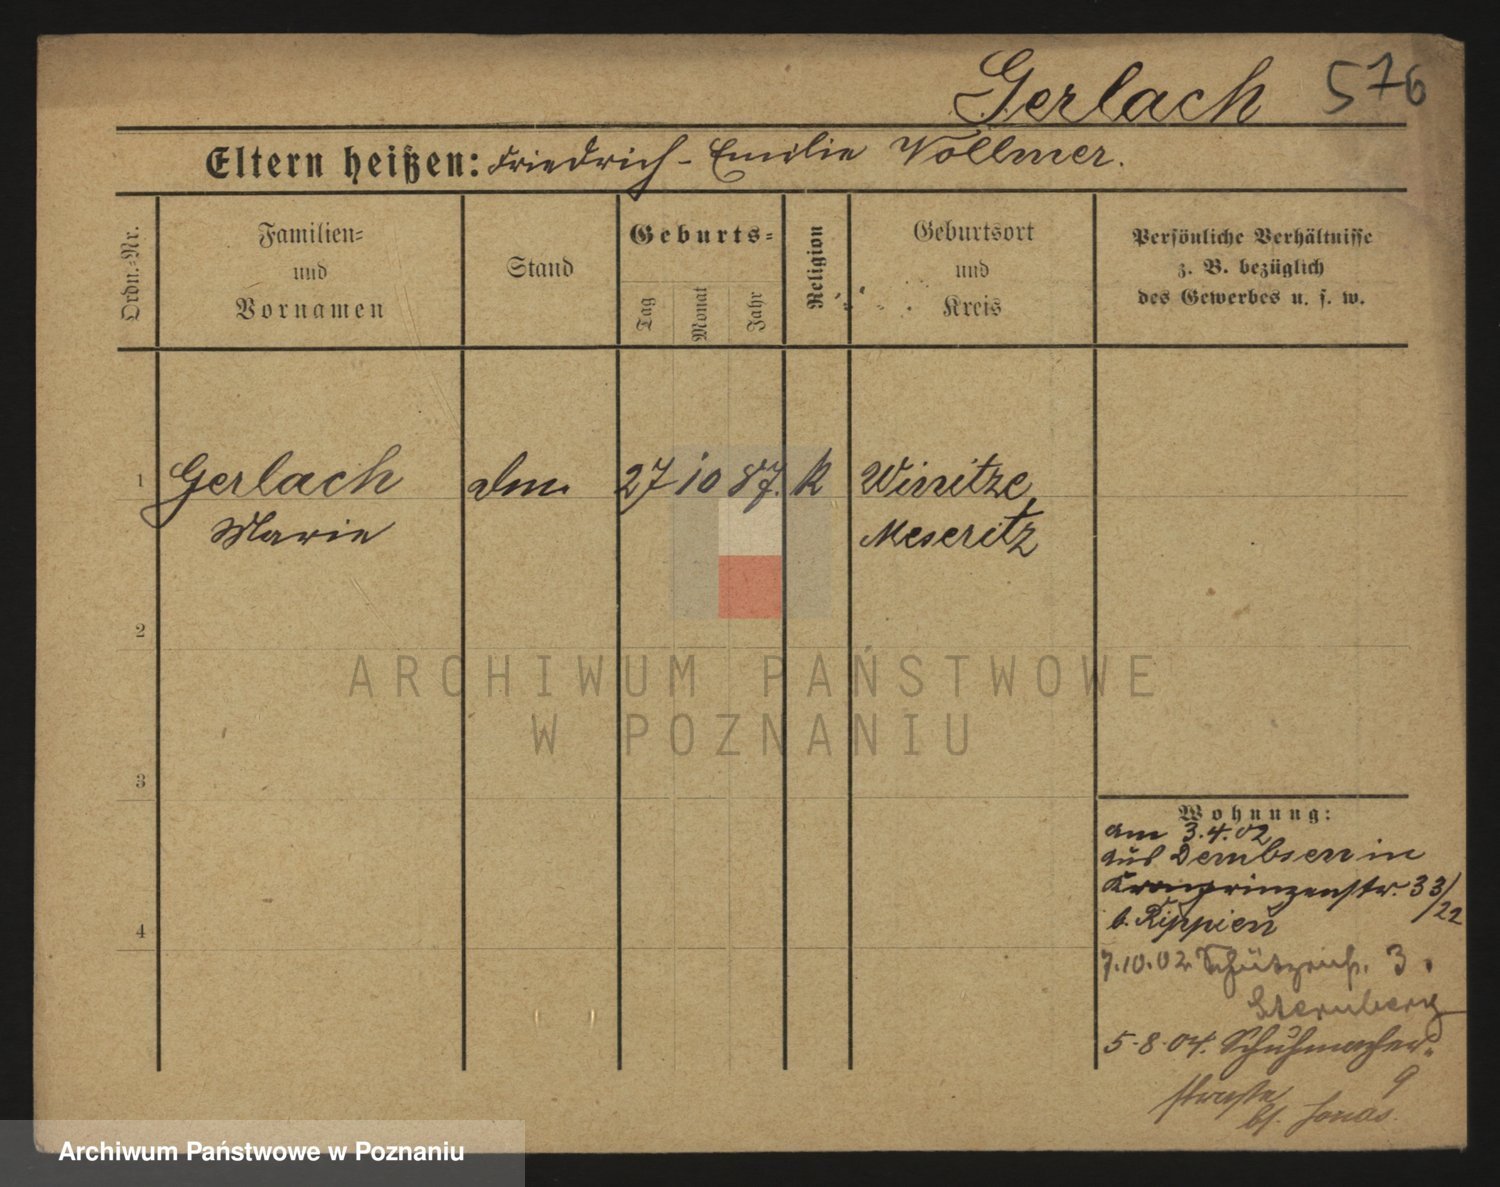 Gerlach 576
Eltern heißen: Friedrich - Emilie Vollmer.
Ordn.-Nr.
Familien-
und
Vornamen
Stand
Geburts-
Tag
Monat
Jahr
Religion
Geburtsort
und
Kreis
Persönliche Verhältnisse
z. B. bezüglich
des Gewerbes u. s. w.
1 Gerlach 27 10 87. k
Marie Meseritz
2
3
4
Wohnung:
am 3.4.02
aus Dembsen in
Kronprinzenstr. 33/22
b. Rippien
7.10.02 Schützenstr. 3.
Sternberg
5-8-04. Schuhmacher-
straße 9
bei Jonas.
ARCHIWUM PAŃSTWOWE
W POZNANIU
Archiwum Państwowe w Poznaniu